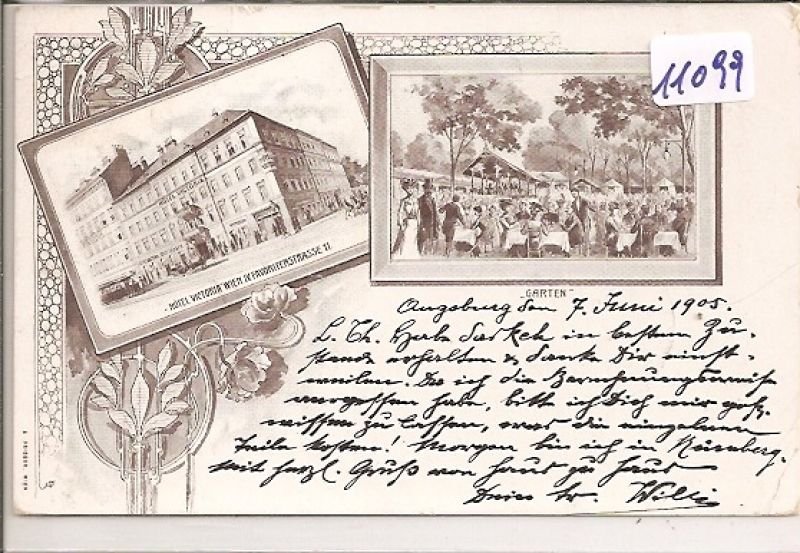 11099
HOTEL VICTORIA
- HOTEL VICTORIA WIEN IV FAVORITENSTRASSE 11.
„GARTEN"
Augsburg den 7. Juni 1905.
L. Th. Habe Packet in bestem Zu-
stande erhalten & danke Dir einst-
weilen. Da ich die Berechnungsweise
vergessen habe, bitte ich Dich mir gefl.
wissen zu lassen, was die einzelnen
Teile kosten! Morgen bin ich in Nürnberg.
Mit herzl. Gruß von Haus zu Haus
Dein tr. Willi